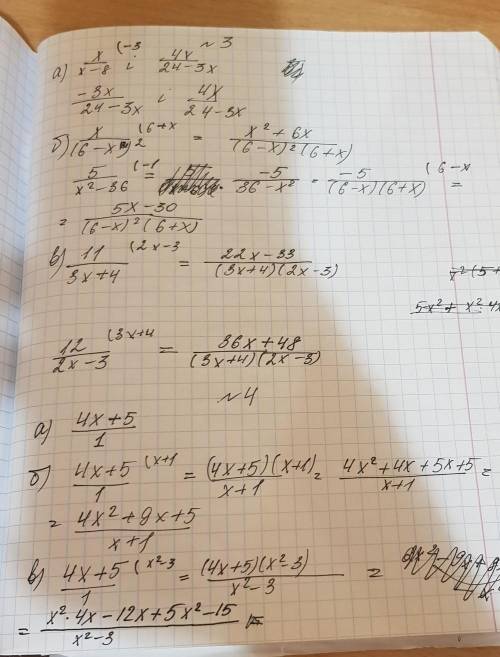 №3
а) x/(x-8) (-3 і 4x/(24-3x)
-3x/(24-3x) і 4x/(24-3x)
б) x/(6-x)² (6+x = (x²+6x)/((6-x)²(6+x))
5/(x²-36) (-1 = -5/(36-x²) = -5/((6-x)(6+x)) (6-x =
= (5x-30)/((6-x)²(6+x))
в) 11/(3x+4) (2x-3 = (22x-33)/((3x+4)(2x-3))
12/(2x-3) (3x+4 = (36x+48)/((3x+4)(2x-3))
№4
а) (4x+5)/1
б) (4x+5)/1 (x+1 = ((4x+5)(x+1))/(x+1) = (4x²+4x+5x+5)/(x+1) =
= (4x²+9x+5)/(x+1)
в) (4x+5)/1 (x²-3 = ((4x+5)(x²-3))/(x²-3) =
= (x²·4x-12x+5x²-15)/(x²-3)